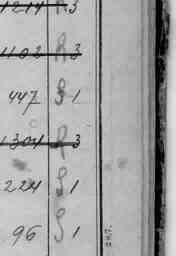 1214 R 3
1102 R 3
447 S 1
1304 R 3
224 S 1
96 S 1